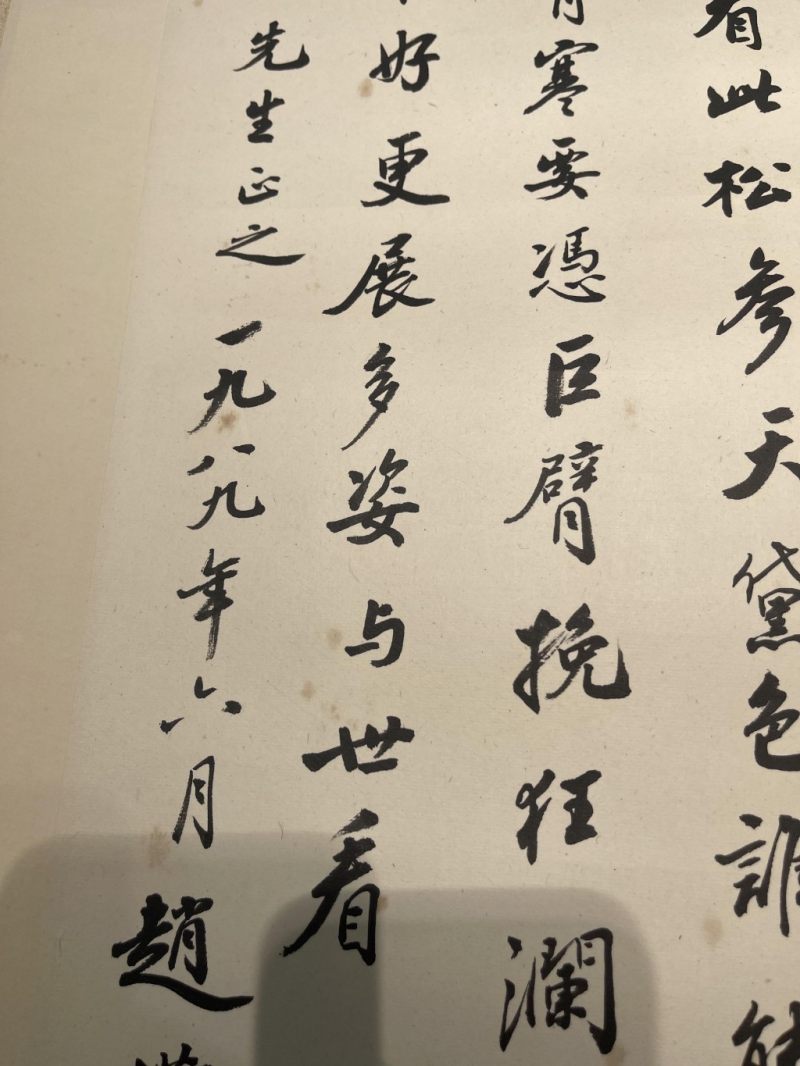 看此松參天黛色誰能
寒要憑巨臂挽狂瀾
好更展多姿与世看
先生正之
一九八九年六月趙